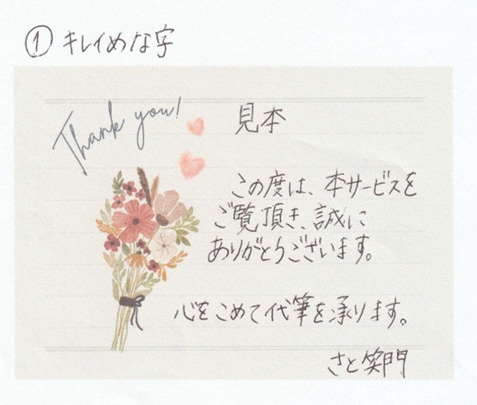 ① キレイめな字
Thank you!
見本
この度は、本サービスを
ご覧頂き、誠に
ありがとうございます。
心をこめて代筆を承ります。
さと笑門